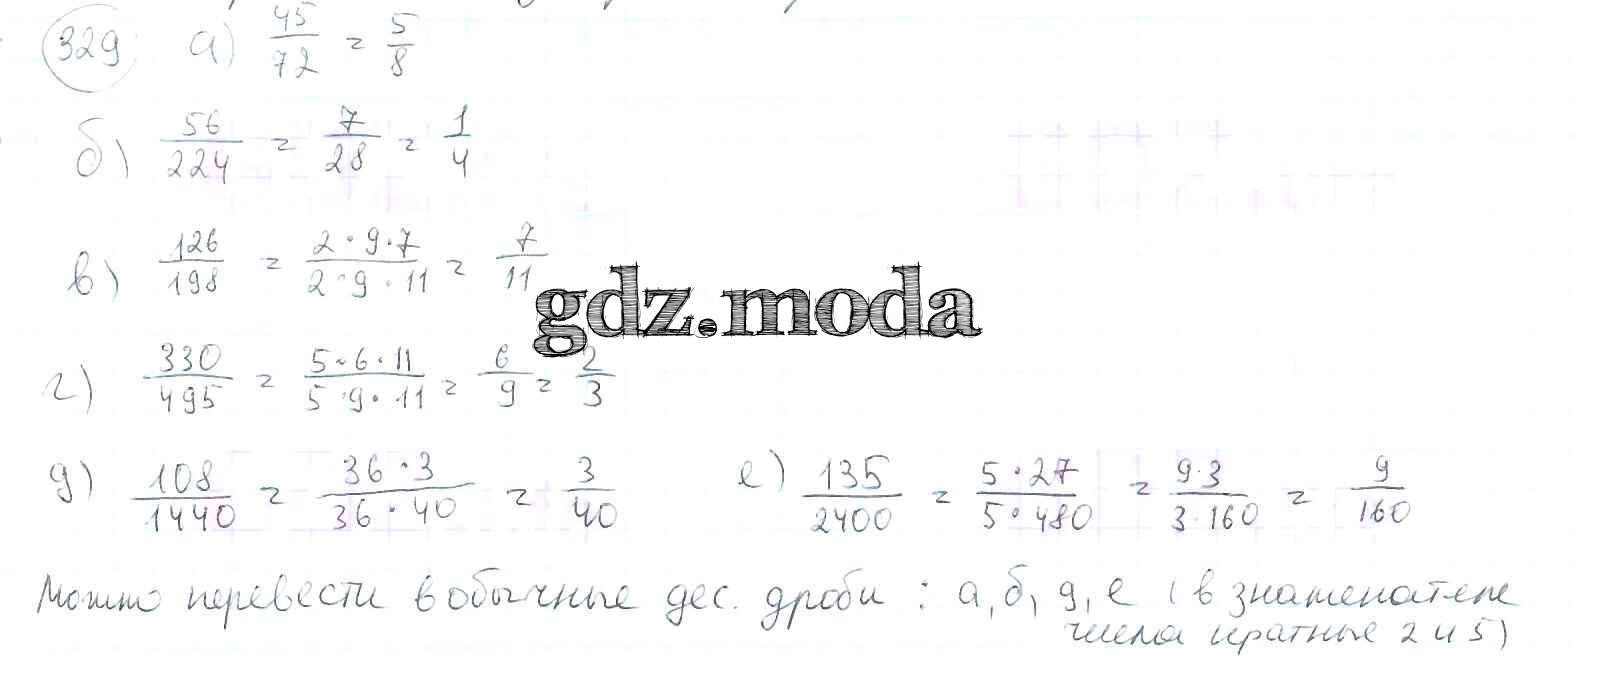 329 а) 45/72 = 5/8
б) 56/224 = 7/28 = 1/4
в) 126/198 = 2·9·7/2·9·11 = 7/11
gdz.moda
г) 330/495 = 5·6·11/5·9·11 = 6/9 = 2/3
д) 108/1440 = 36·3/36·40 = 3/40 е) 135/2400 = 5·27/5·480 = 9·3/3·160 = 9/160
Можно перевести в обычные дес. дроби: а, б, д, е (в знаменателе
числа кратные 2 и 5)